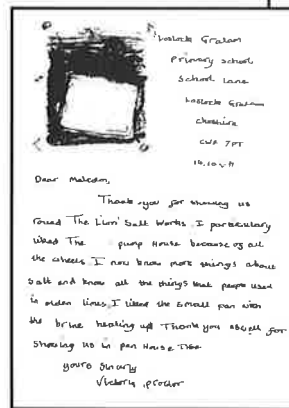 Lostock Graham
primary school
School Lane
Lostock Graham
cheshire
CW9 7PT
Dear Malcolm,
Thank you for showing us
round The Lion Salt Works. I particulary
liked The pump House because of all
the wheels. I now know more things about
salt and know all the things that people used
in olden times. I liked the small pan with
the brine heating up. Thank you aswell for
showing us in pan House Three
yours sincerly
Victoria proctor